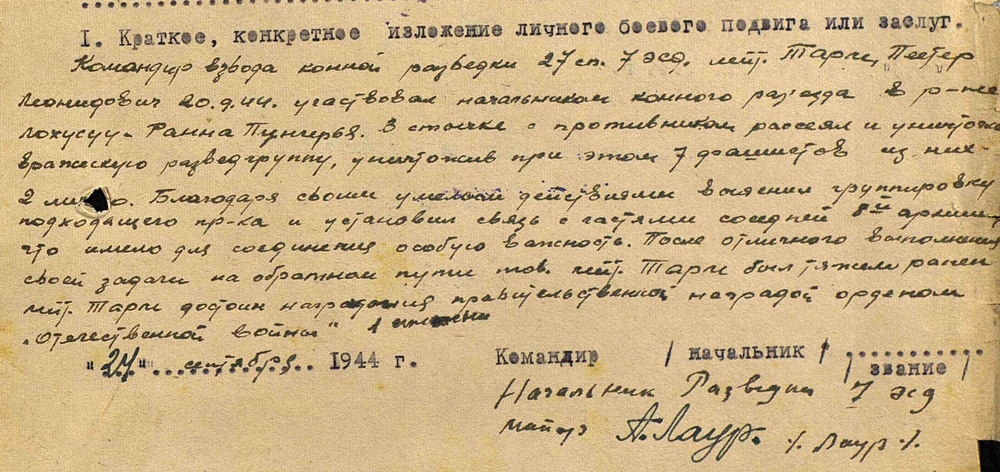 I. Краткое, конкретное изложение личного боевого подвига или заслуг.
Командир взвода конной разведки 27 сп. 7 эсд. лйт. Тарги, Пеетер
Леонидович 20.9.44. участвовал начальником конного раз'езда в р-не
Лохусуу - Ранна Пунгерья. В стычке с противником рассеял и уничтожил
вражескую разведгруппу, уничтожив при этом 7 фашистов из них
2 лично. Благодаря своим умелым действиями выяснил группировку
подходящего пр-ка и установил связь с частями соседней 8ой армии,
что имело для соединения особую важность. После отличного выполнения
своей задачи на обратном пути тов. лйт. Тарги был тяжело ранен
лйт. Тарги достоин награждения правительственной наградой орденом
„Отечественной войны" 1 степени
"24" сентября 1944 г.
Командир / начальник /
/ звание /
Начальник Разведки 7 эсд
майор А. Лаур. /. Лаур ./.